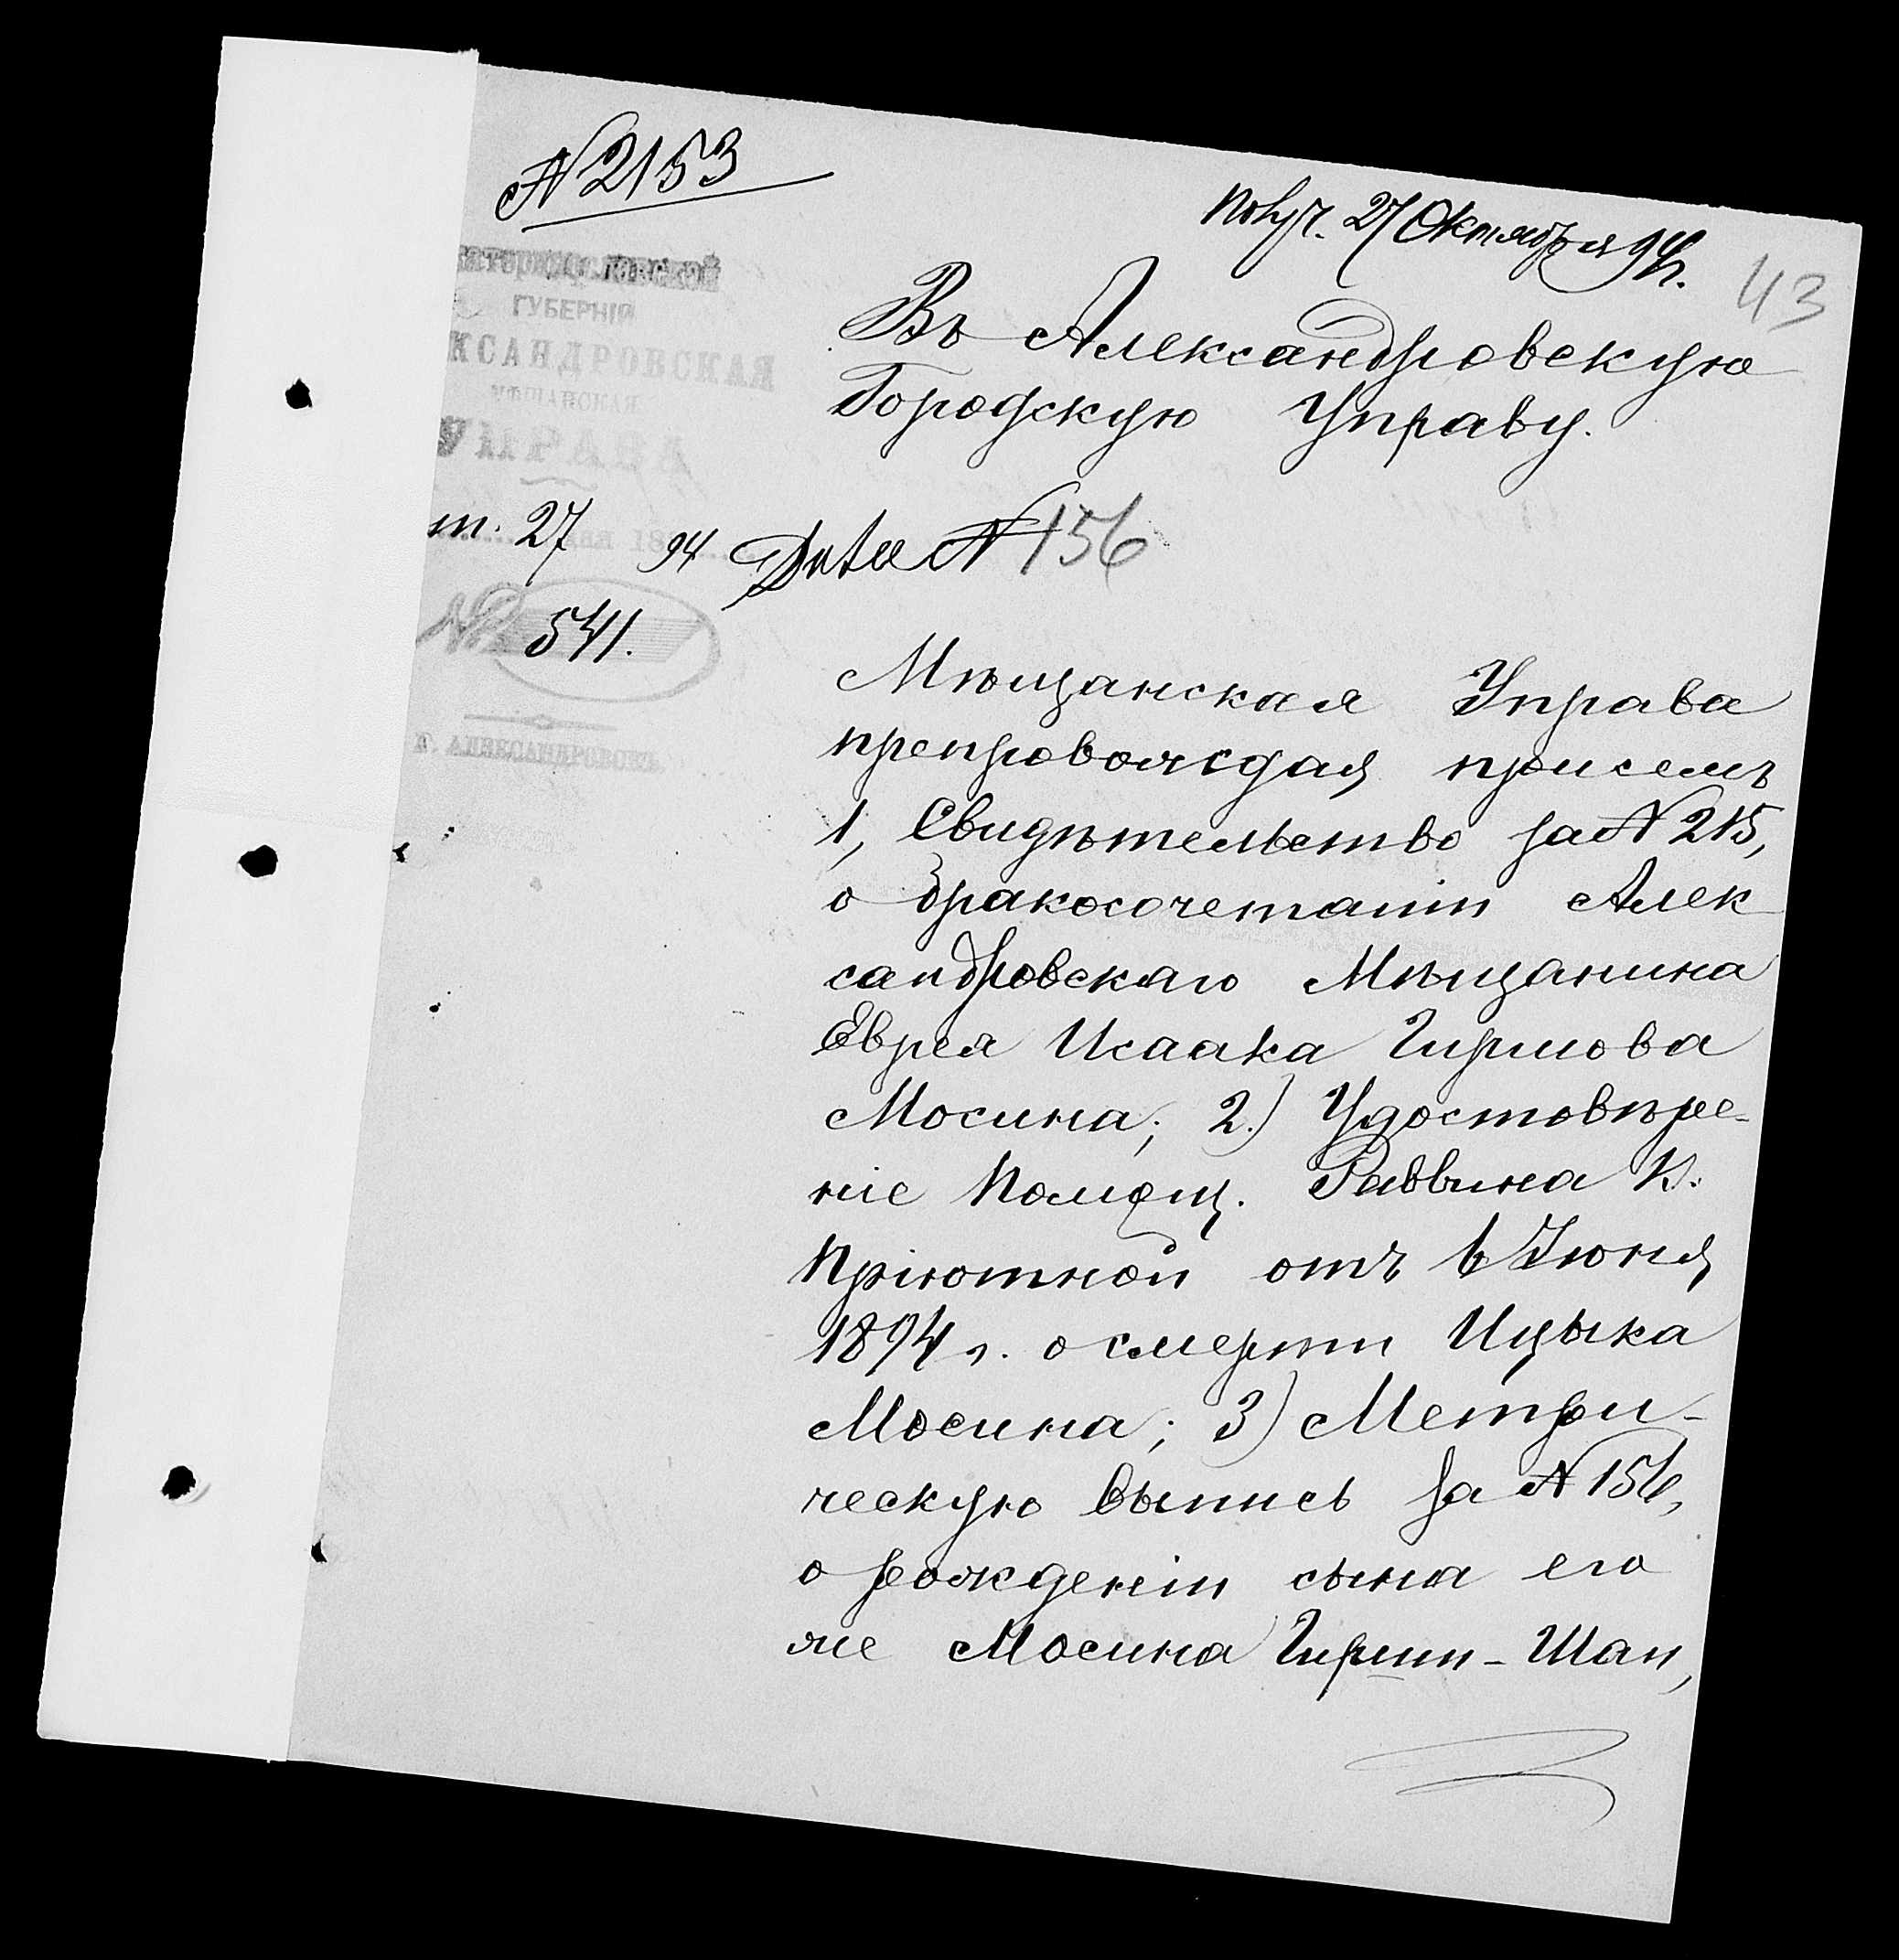 № 2153
Получ. 27 Октября 94 г.
43
Екатеринославской
ГУБЕРНІИ
АЛЕКСАНДРОВСКАЯ
МѢЩАНСКАЯ
УПРАВА
Въ Александровскую
Городскую Управу.
т. 27 дня 18 94
№ 156
№ 541.
г. АЛЕКСАНДРОВСКЪ
Мѣщанская Управа
препровождая при семъ
1, Свидѣтельство за № 215,
о бракосочетаніи Алек
сандровскаго Мѣщанина
Еврея Исаака Гиршова
Мосина; 2) Удостовѣре-
ніе Помощ. Раввина К.
Пріютной отъ 6 Іюня
1894 г. о смерти Ицыка
Мосина; 3) Метри-
ческую выпись за № 156,
о рожденіи сына его
же Мосина Гирши-Шаи,